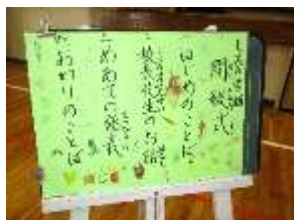 式
はじめのことば
校長先生のお話
めあての発表
おわりのことば